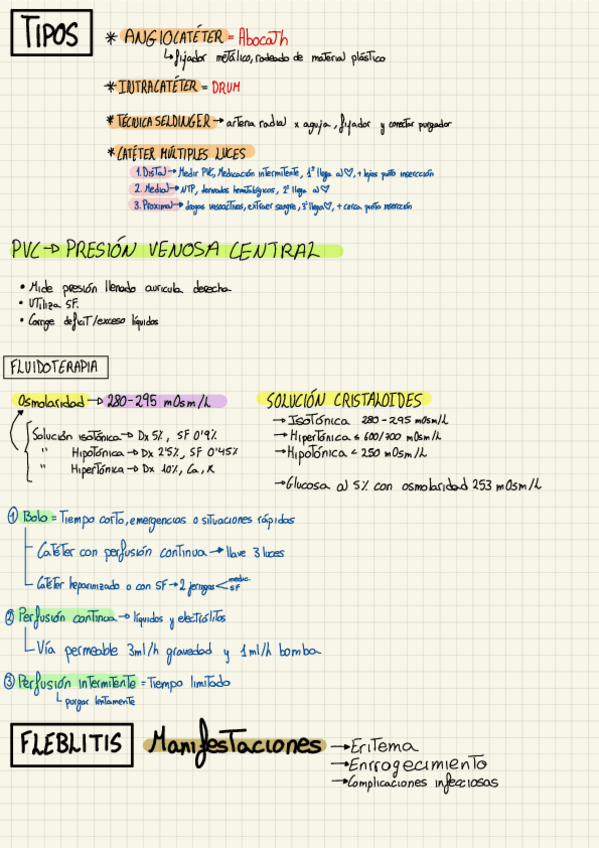 TIPOS
* ANGIOCATÉTER = Abocath
↳ fijador metálico, rodeado de material plástico
* INTRACATÉTER = DRUM
* TÉCNICA SELDINGER → arteria radial x aguja, fijador y conectar purgador
* CATÉTER MÚLTIPLES LUCES
1. Distal → Medir PVC, Medicación intermitente, 1º llega al ♡, + lejos punto inserccción
2. Medial → NTP, derivados hematológicos, 2º llega al ♡
3. Proximal → drogas vasoactivas, extraer sangre, 3º llega ♡, + cerca punto inserción
PVC → PRESIÓN VENOSA CENTRAL
• Mide presión llenado aurícula derecha
• Utiliza SF.
• Corrige deficit/exceso líquidos
FLUIDOTERAPIA
Osmolaridad → 280-295 mOsm/L
Solución isotónica → Dx 5%, SF 0'9%
" Hipotónica → Dx 2'5%, SF 0'45%
" Hipertónica → Dx 10%, Ca, K
SOLUCIÓN CRISTALOIDES
→ Isotónica 280-295 mOsm/L
→ Hipertónica ≤ 600/700 mOsm/L
→ Hipotónica < 250 mOsm/L
→ Glucosa al 5% con osmolaridad 253 mOsm/L
① Bolo = Tiempo corto, emergencias o situaciones rápidas
Catéter con perfusión continua → llave 3 luces
Catéter heparinizado o con SF → 2 jeringas < medic. SF
② Perfusión continua → líquidos y electrólitos
Vía permeable 3ml/h gravedad y 1ml/h bomba
③ Perfusión intermitente = Tiempo limitado
↳ purgar lentamente
FLEBLITIS Manifestaciones → Eritema
→ Enrrogecimiento
→ Complicaciones infecciosas